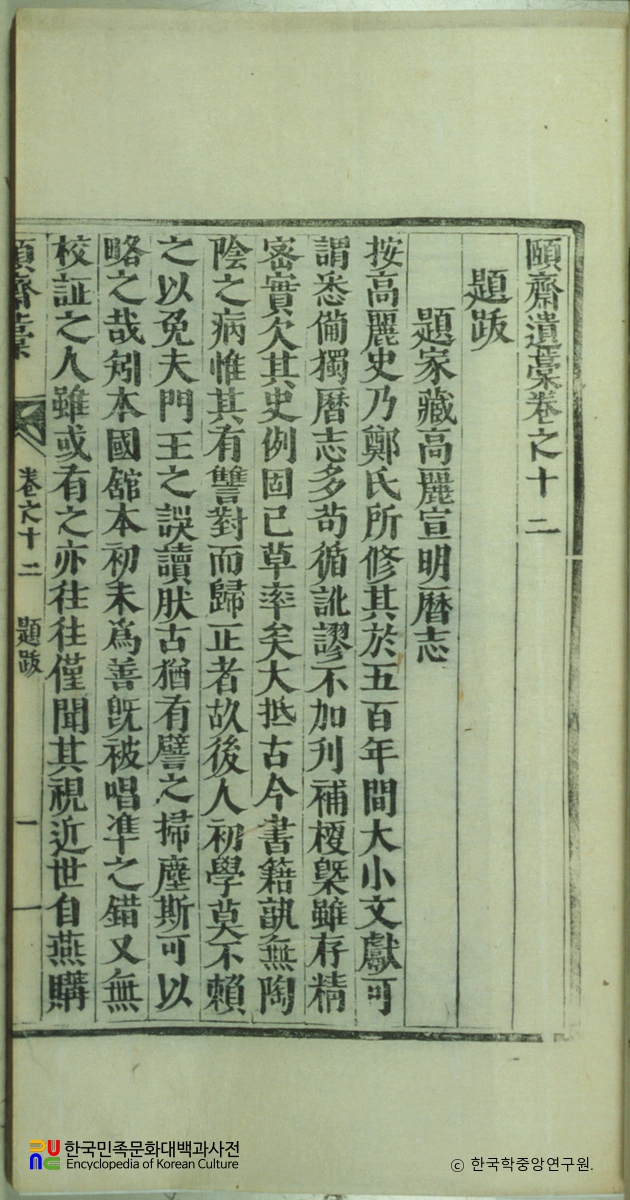 頤齋遺藁卷之十二
題跋
題家藏高麗宣明曆志
按高麗史乃鄭氏所修其於五百年間大小文獻可
謂悉備獨曆志多茍循訛謬不加刋補榎槩雖存精
密實欠其史例固已草率矣大抵古今書籍孰無陶
陰之病惟其有讐對而歸正者故後人初學莫不賴
之以免夫門王之誤讀肰古猶有譬之掃塵斯可以
略之哉矧本國舘本初未爲善旣被唱準之錯又無
校証之人雖或有之亦往往僅聞其視近世自燕購
頤齋藁
卷之十二
題跋
一
한국민족문화대백과사전
Encyclopedia of Korean Culture
ⓒ 한국학중앙연구원.